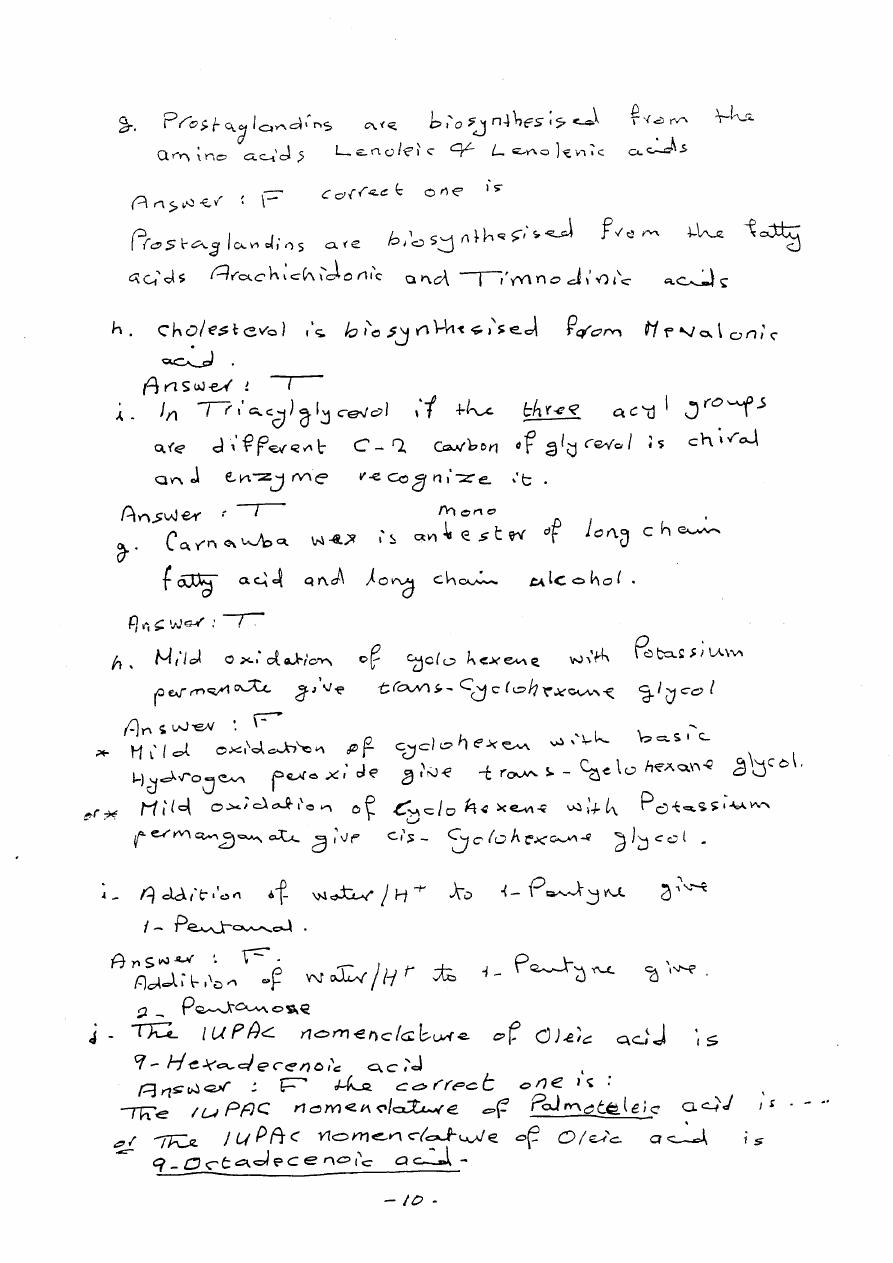 g. Prostaglandins are biosynthesised from the
amino acids Lenoleic & Lenolenic acids
Answer : F correct one is
Prostaglandins are biosynthesised from the fatty
acids Arachichidonic and Timnodinic acids
h. Cholesterol is biosynthesised from Mevalonic
acid .
Answer : T
i. In Triacylglycerol if the three acyl groups
are different C-2 carbon of glycerol is chiral
and enzyme recognize it .
Answer : T
mono
g. Carnauba wax is an ester of long chain
fatty acid and long chain alcohol .
Answer : T
h. Mild oxidation of cyclohexene with Potassium
permenate give trans-Cyclohexane glycol
Answer : F
* Mild oxidation of cyclohexen with basic
Hydrogen peroxide give trans-Cyclohexane glycol.
or * Mild oxidation of Cyclohexene with Potassium
permanganate give cis- Cyclohexane glycol .
i- Addition of water/H+ to 1-Pentyne give
1- Pentanal .
Answer : F .
Addition of water/H+ to 1- Pentyne give .
2- Pentanone
j - The IUPAC nomenclature of Oleic acid is
9-Hexadecenoic acid
Answer : F the correct one is :
The IUPAC nomenclature of Palmoteleic acid is ....
or The IUPAC nomenclature of Oleic acid is
9-Octadecenoic acid-
- 10 -